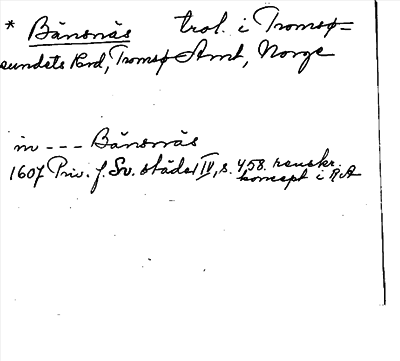 * Bånsnäs trol. i Tromsø-
sundets Prd, Tromsø Amt, Norge
in --- Bånsnäs
1607 Priv. f. Sv. städer IV, s. 458. renskr.
koncept i RA